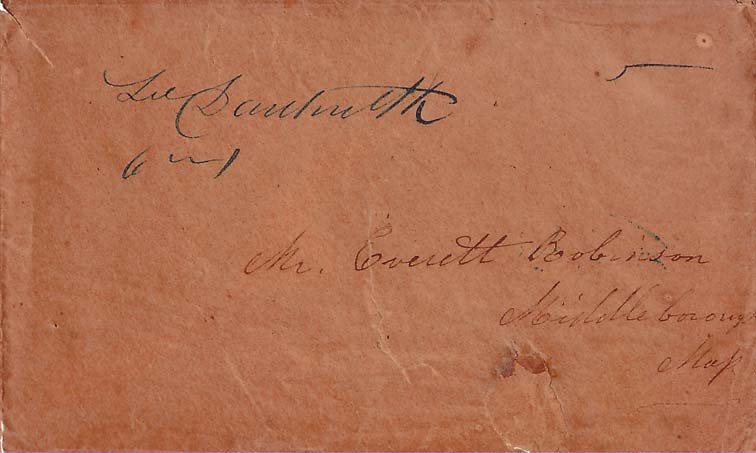 5
Dartmouth
6
Mr. Everett Robinson
Middleboroug
Mass